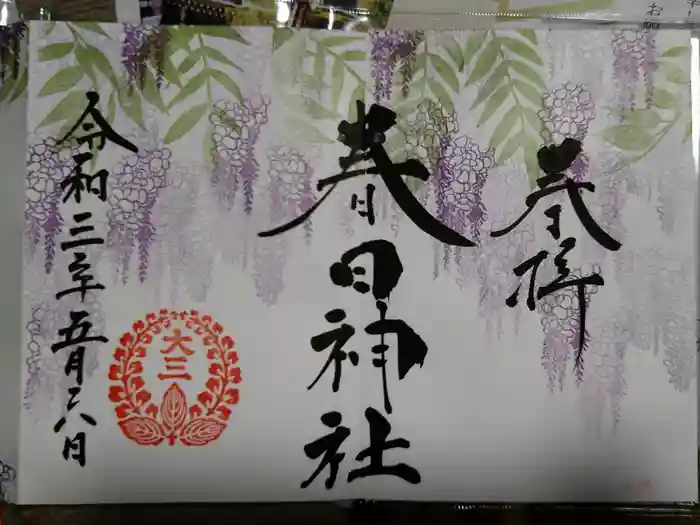 奉拝
春日神社
令和三年五月二八日
大三
お願